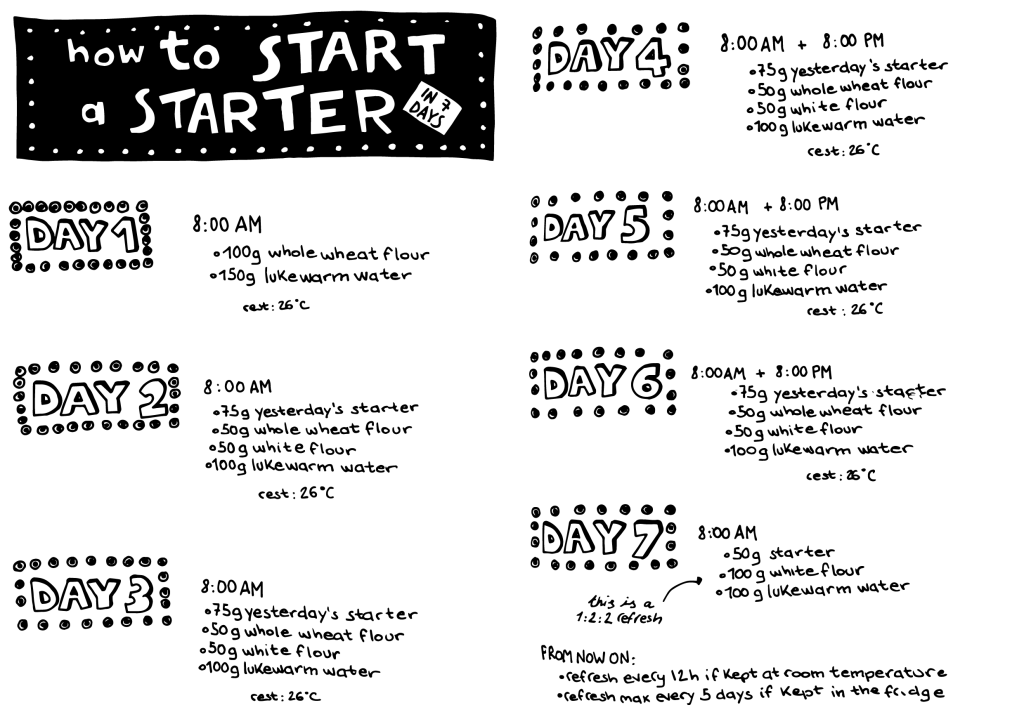 how to START
a STARTER
IN 7
DAYS
DAY 1
8:00 AM
•100g whole wheat flour
•150g lukewarm water
rest: 26°C
DAY 2
8:00 AM
•75g yesterday's starter
•50g whole wheat flour
•50g white flour
•100g lukewarm water
rest: 26°C
DAY 3
8:00 AM
•75g yesterday's starter
•50g whole wheat flour
•50g white flour
•100g lukewarm water
rest: 26°C
DAY 4
8:00 AM + 8:00 PM
•75g yesterday's starter
•50g whole wheat flour
•50g white flour
•100g lukewarm water
rest: 26°C
DAY 5
8:00 AM + 8:00 PM
•75g yesterday's starter
•50g whole wheat flour
•50g white flour
•100g lukewarm water
rest: 26°C
DAY 6
8:00 AM + 8:00 PM
•75g yesterday's starter
•50g whole wheat flour
•50g white flour
•100g lukewarm water
rest: 26°C
DAY 7
8:00 AM
•50g starter
•100g white flour
•100g lukewarm water
this is a
1:2:2 refresh
FROM NOW ON:
•refresh every 12h if kept at room temperature
•refresh max every 5 days if kept in the fridge